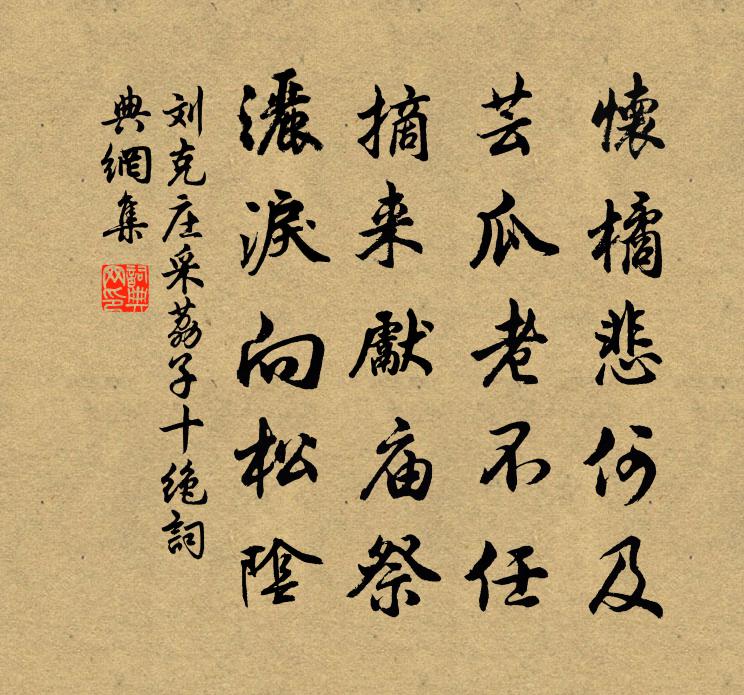 懷橘悲何及
芸瓜老不任
摘来獻庙祭
灑淚向松陰
刘克庄采荔子十绝詞
典網集
詞典网印